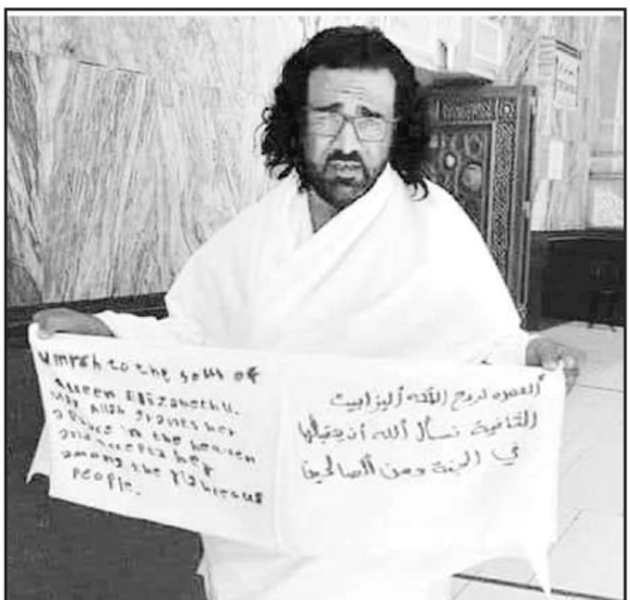 Umrah to the soul of
Queen Elizabeth ll.
May Allah grants her
a place in the heaven
and accepts her
among the righteous
people.
ألعمره لروح الملكه أليزابيث
الثانية نسأل الله أن يتقبلها
في الجنة ومن الصالحين